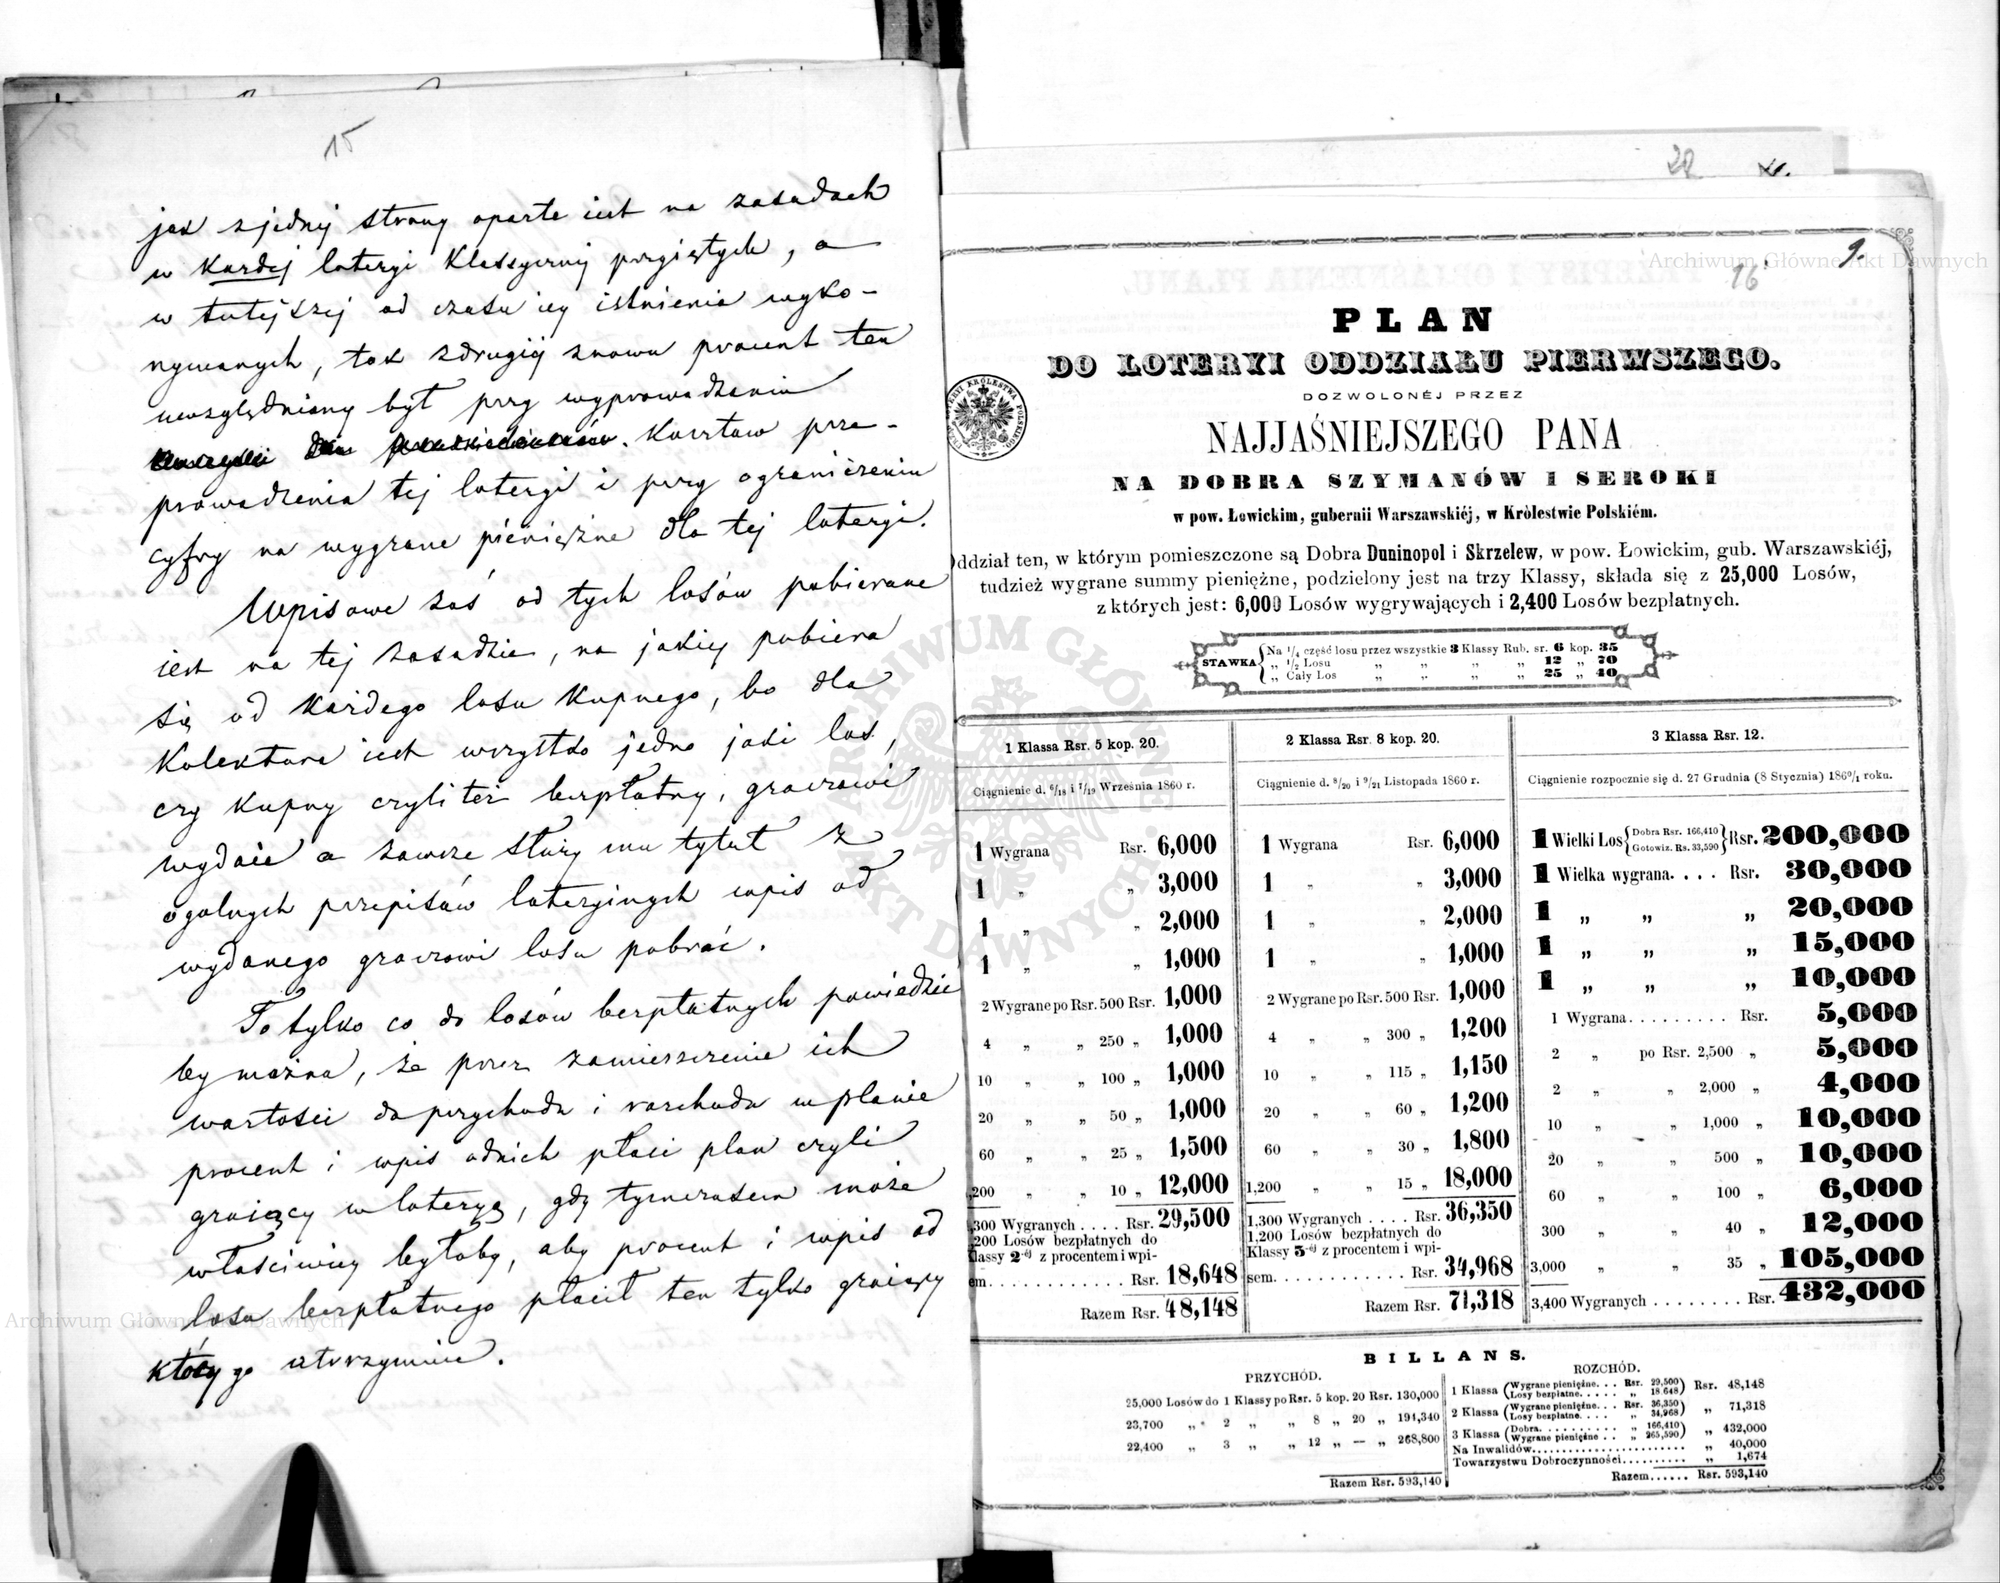 15
jak z jednej strony oparte iest na zasadach
w każdej loteryi klassycznej przyiętych, a
w tutejszej od czasu iey istnienia wyko-
nywanych, tak z drugiej znowu procent ten
uwzględniony był przy wyprowadzeniu
kosztów prze-
prowadzenia tej loteryi i przy ograniczeniu
cyfry na wygrane pieniężne dla tej loteryi.
Wpisowe zaś od tych losów pobierane
iest na tej zasadzie, na jakiey pobiera
się od każdego losu kupnego, bo dla
Kolektora iest wszystko jedno jaki los,
czy kupny czyli też bezpłatny, graczowi
wydaie a zawsze służy mu tytuł z
ogolnych przepisów loteryinych wpis od
wydanego graczowi losu pobrać.
To tylko co do losów bezpłatnych powiedzieć
by można, że przez zamieszczenie ich
wartości do przychodu i rozchodu w planie
procent i wpis od nich płaci plan czyli
graiący w loteryę, gdy tymczasem może
właściwiey byłoby, aby procent i wpis od
losu bezpłatnego płacił ten tylko graiący
który go otrzymuie.
20
9.
16
PLAN
DO LOTERYI ODDZIAŁU PIERWSZEGO.
DOZWOLONÉJ PRZEZ
NAJJAŚNIEJSZEGO PANA
NA DOBRA SZYMANÓW I SEROKI
w pow. Łowickim, gubernii Warszawskiéj, w Królestwie Polskiém.
Oddział ten, w którym pomieszczone są Dobra Duninopol i Skrzelew, w pow. Łowickim, gub. Warszawskiéj,
tudzież wygrane summy pieniężne, podzielony jest na trzy Klassy, składa się z 25,000 Losów,
z których jest: 6,000 Losów wygrywających i 2,400 Losów bezpłatnych.
STAWKA
Na 1/4 część losu przez wszystkie 3 Klassy Rub. sr. 6 kop. 35
„ 1/2 Losu „ „ „ „ 12 „ 70
„ Cały Los „ „ „ „ 25 „ 40
1 Klassa Rsr. 5 kop. 20.
Ciągnienie d. 6/18 i 7/19 Września 1860 r.
1 Wygrana Rsr. 6,000
1 „ „ 3,000
1 „ „ 2,000
1 „ „ 1,000
2 Wygrane po Rsr. 500 Rsr. 1,000
4 „ „ 250 „ 1,000
10 „ „ 100 „ 1,000
20 „ „ 50 „ 1,000
60 „ „ 25 „ 1,500
,200 „ „ 10 „ 12,000
,300 Wygranych . . . . Rsr. 29,500
,200 Losów bezpłatnych do
lassy 2-éj z procentem i wpi-
em. . . . . . . . . . . . Rsr. 18,648
Razem Rsr. 48,148
2 Klassa Rsr. 8 kop. 20.
Ciągnienie d. 8/20 i 9/21 Listopada 1860 r.
1 Wygrana Rsr. 6,000
1 „ „ 3,000
1 „ „ 2,000
1 „ „ 1,000
2 Wygrane po Rsr. 500 Rsr. 1,000
4 „ „ 300 „ 1,200
10 „ „ 115 „ 1,150
20 „ „ 60 „ 1,200
60 „ „ 30 „ 1,800
1,200 „ „ 15 „ 18,000
1,300 Wygranych . . . . Rsr. 36,350
1,200 Losów bezpłatnych do
Klassy 3-éj z procentem i wpi-
sem. . . . . . . . . . . . Rsr. 34,968
Razem Rsr. 71,318
3 Klassa Rsr. 12.
Ciągnienie rozpocznie się d. 27 Grudnia (8 Stycznia) 1860/1 roku.
1 Wielki Los {Dobra Rsr. 166,410 Gotowiz. Rs. 33,590} Rsr. 200,000
1 Wielka wygrana. . . . Rsr. 30,000
1 „ „ „ 20,000
1 „ „ „ 15,000
1 „ „ „ 10,000
1 Wygrana . . . . . . . . . Rsr. 5,000
2 „ po Rsr. 2,500 „ 5,000
2 „ „ 2,000 „ 4,000
10 „ „ 1,000 „ 10,000
20 „ „ 500 „ 10,000
60 „ „ 100 „ 6,000
300 „ „ 40 „ 12,000
3,000 „ „ 35 „ 105,000
3,400 Wygranych . . . . . . . . Rsr. 432,000
BILLANS.
PRZYCHÓD.
25,000 Losów do 1 Klassy po Rsr. 5 kop. 20 Rsr. 130,000
23,700 „ „ 2 „ „ 8 „ 20 „ 194,340
22,400 „ 3 „ „ 12 „ — „ 268,800
Razem Rsr. 593,140
ROZCHÓD.
1 Klassa (Wygrane pieniężne. . . Rsr. 29,500 Losy bezpłatne. . . . . „ 18 648) Rsr. 48,148
2 Klassa (Wygrane pieniężne. . . Rsr. 36,350 Losy bezpłatne. . . . „ 34,968) „ 71,318
3 Klassa (Dobra. . . . . . . . . . „ 166,410 Wygrane pieniężne . . „ 265,590) „ 432,000
Na Inwalidów. . . . . . . . . . . . „ 40,000
Towarzystwu Dobroczynności. . . . . . . . „ 1,674
Razem . . . . . Rsr. 593,140
Archiwum Główne Akt Dawnych
Archiwum Główne Akt Dawnych
ARCHIWUM GŁÓWNE AKT DAWNYCH